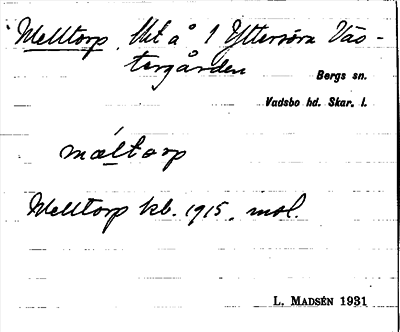 Melltorp. Ut å 1 Yttersöra Väs-
tergården
Bergs sn.
Vadsbo hd. Skar. l.
mæltorp
Melltorp kb. 1915. mol.
L. MADSÉN 1931